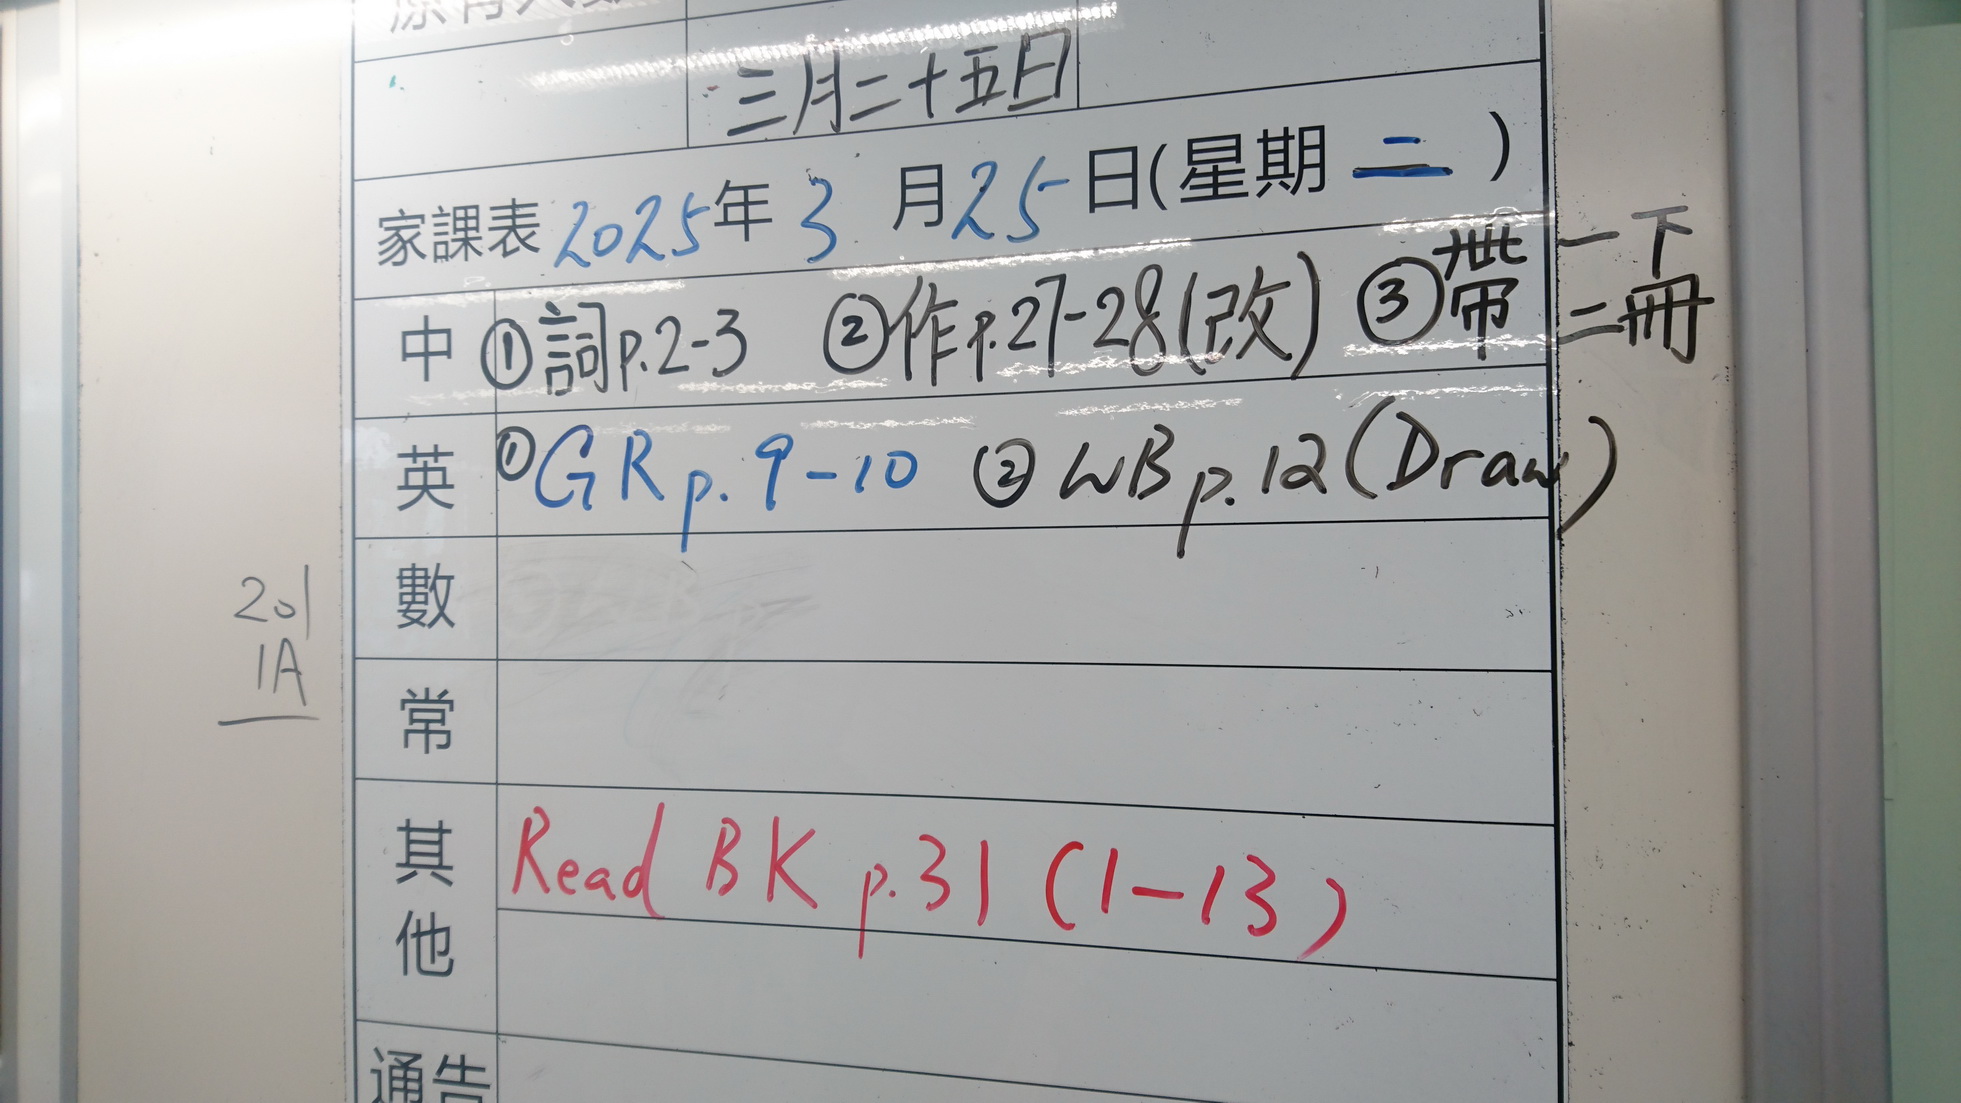 三月二十五日
家課表 2025年 3 月 25 日(星期 二 )
中 ①詞p.2-3 ②作p.27-28(改) ③帶 一下
二冊
英 ①GR p.9-10 ②WB p.12 (Draw)
數
201
1A
常
其他 Read BK p.31 (1-13)
通告